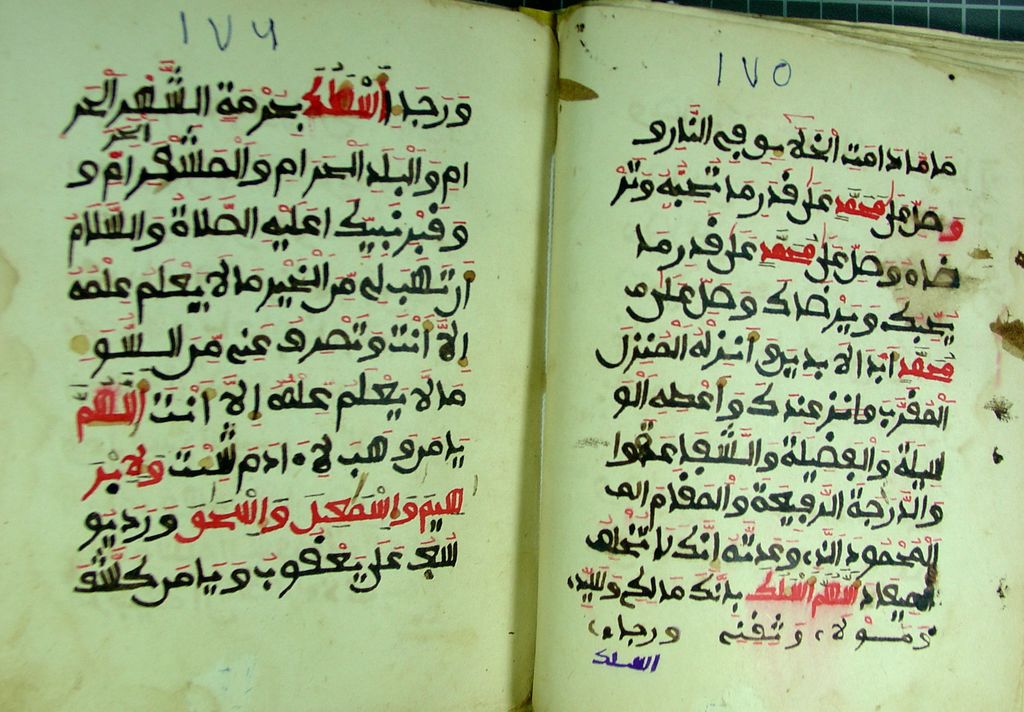 ١٧٥
ماماذامت الخلايو فيه النارو
وصل على محمد على قدر ما تحبه وتر
ضاه وصل على محمد على قدر ما
يحبك ويرضاك وصل على
محمد ابدا الا بدين وانزله المنزل
المقرب عندك واعطه الو
سيلة والفضيلة والشفاعة
والدرجة الرفيعة والمقام الم
المحمود الذي وعدته انك لا تخلف
الميعاد اللهم اسلك بانك مالك وسيد
ومولاي وثقتي ورجاي
اسلك
١٧٦
ورجاء أسئلك بحرمة الشهر الحر
ام والبلد الحرام والمشعر الحرام و
وقبر نبيك عليه الصلاة والسلام
ان تهب لي من الخير ما لا يعلم علمه
إلا أنت وتصرف عني من السو
ما لا يعلم علمه إلا أنت اللهم
يا من وهب لادم شئت ولابر
هيم واسمعيل واسحق ورد يو
سف على يعقوب ويا من كشف